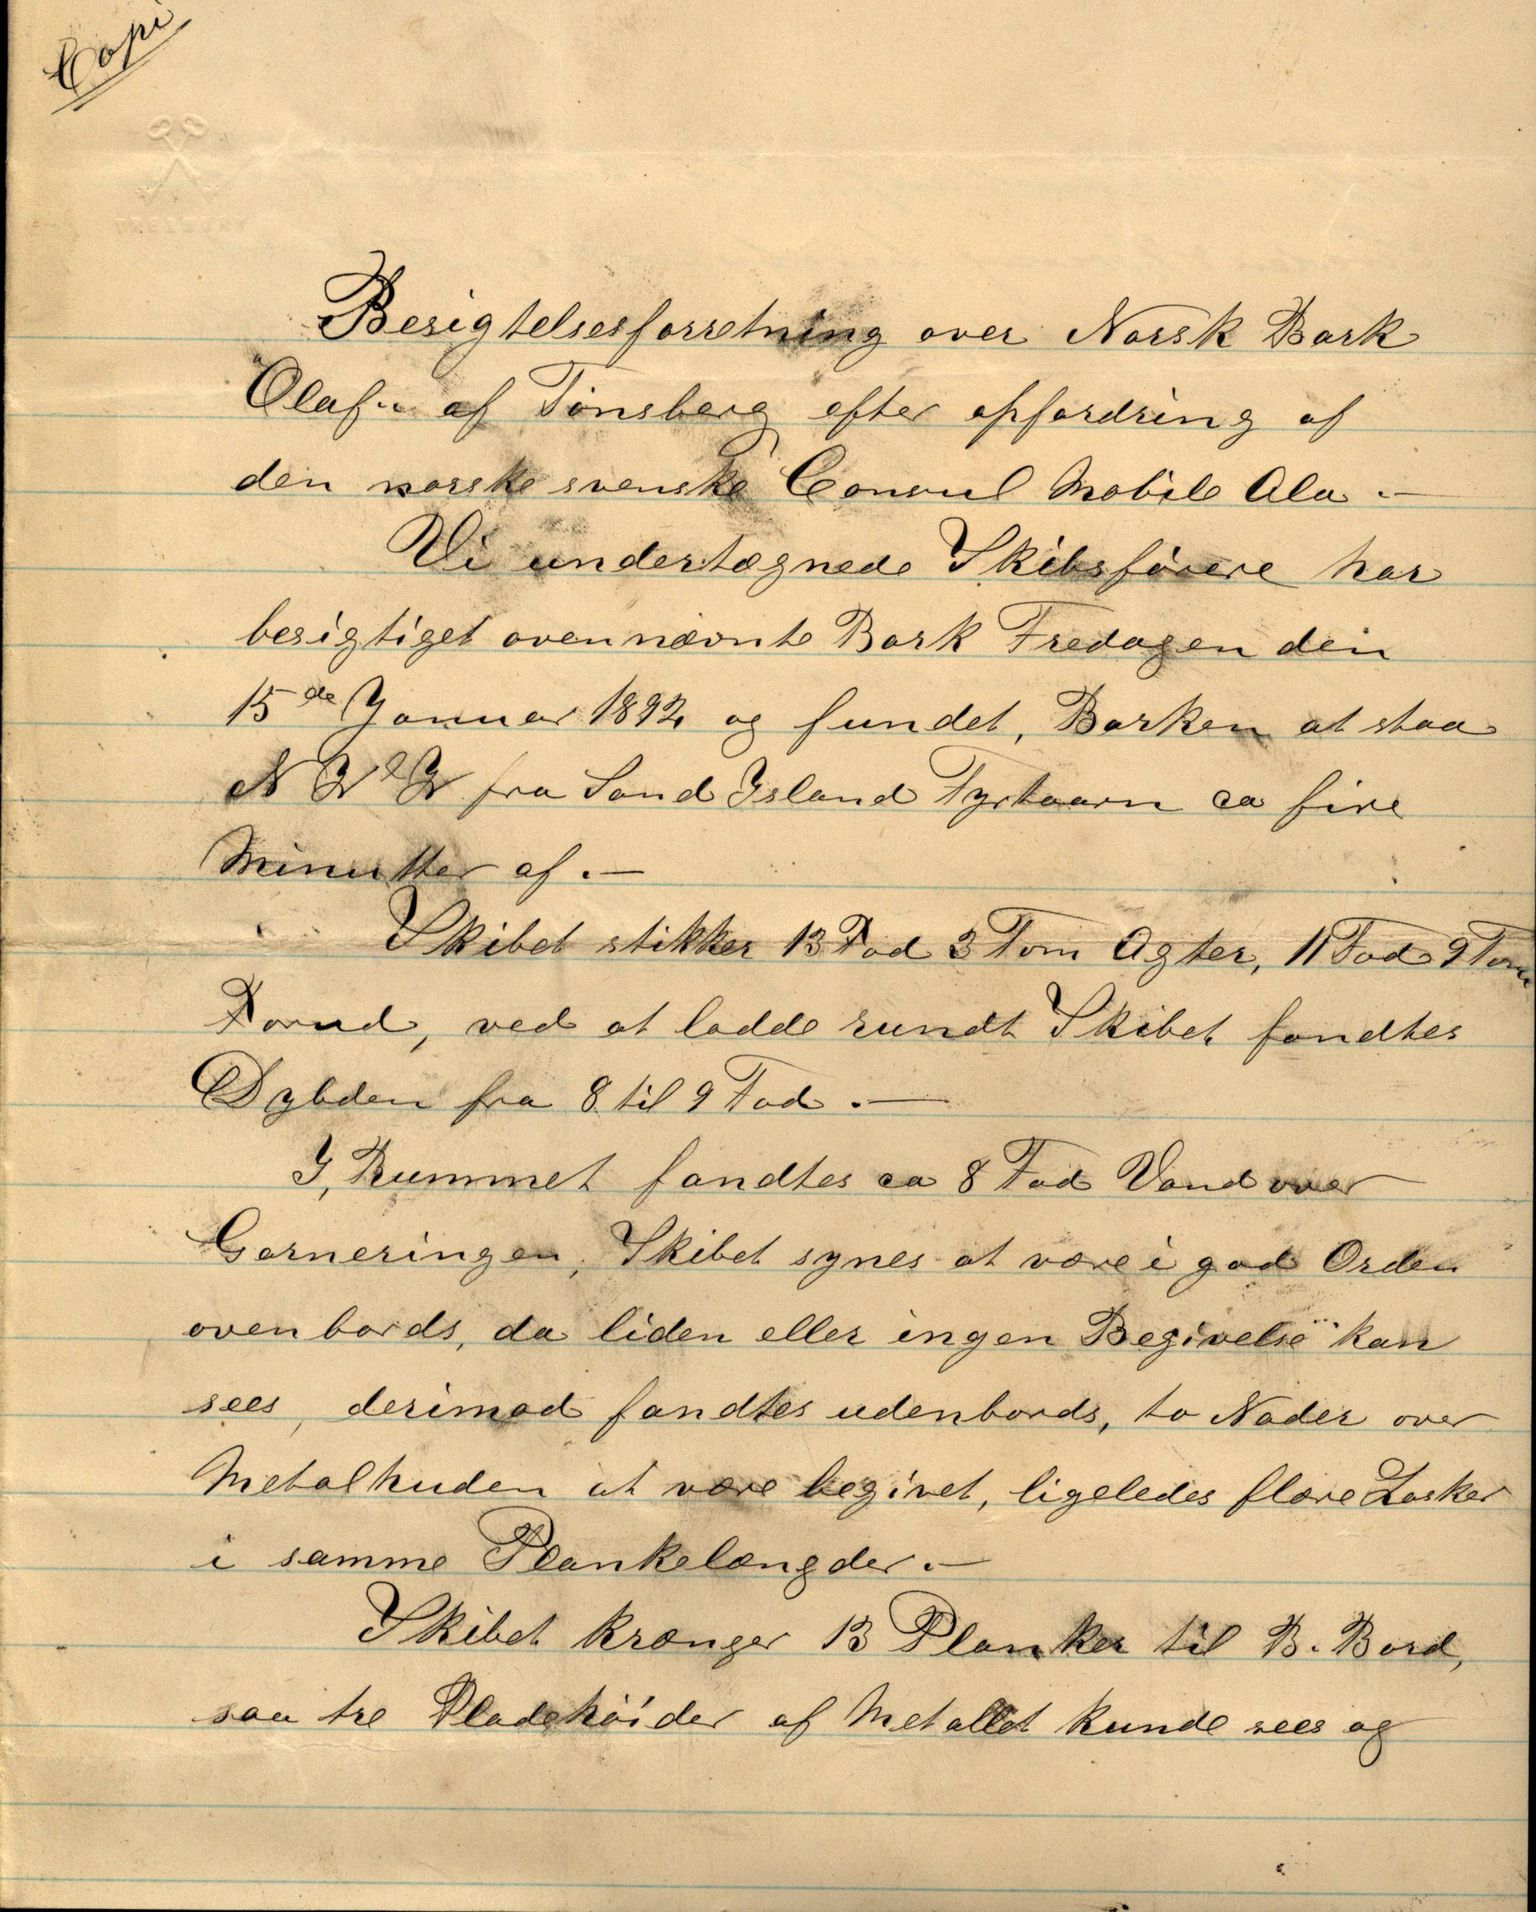 Copi
Besigtelsesforretning over Norsk Bark
"Olaf" af Tönsberg efter opfordring af
den norske svenske Consul Mobile Ala .—
Vi undertegnede Skibsförere har
besigtiget ovennævnte Bark Fredagen den
15de Januar 1892 og fundet, Barken at staa
fra Sand Island Fyrtaarn ca fire
Minutter af .—
Skibet stikker 13 Fod 3 Tom Agter, 11 Fod 9 Tom
Forud, ved at lodde rundt Skibet fandtes
Dybden fra 8 til 9 Fod .—
I, Rummet fandtes ca 8 Fod Vand over
Garneringen, Skibet synes at være i god Orden
ovenbords, da liden eller ingen Begivelse kan
sees, derimod fandtes udenbords, to Nader over
Metalhuden at være begivet, ligeledes flere Lasker
i samme Plankelængder .—
Skibet krænger 13 Planker til B. Bord,
saa tre Pladehöider af Metallet kunde sees og